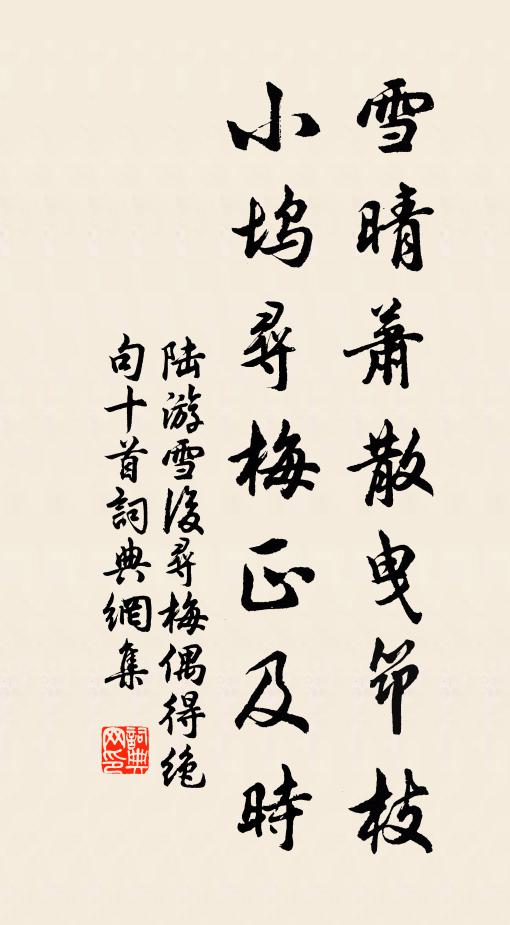 雪晴萧散曳筇枝
小坞尋梅正及時
陆游雪後尋梅偶得绝
句十首詞典網集
詞典網印